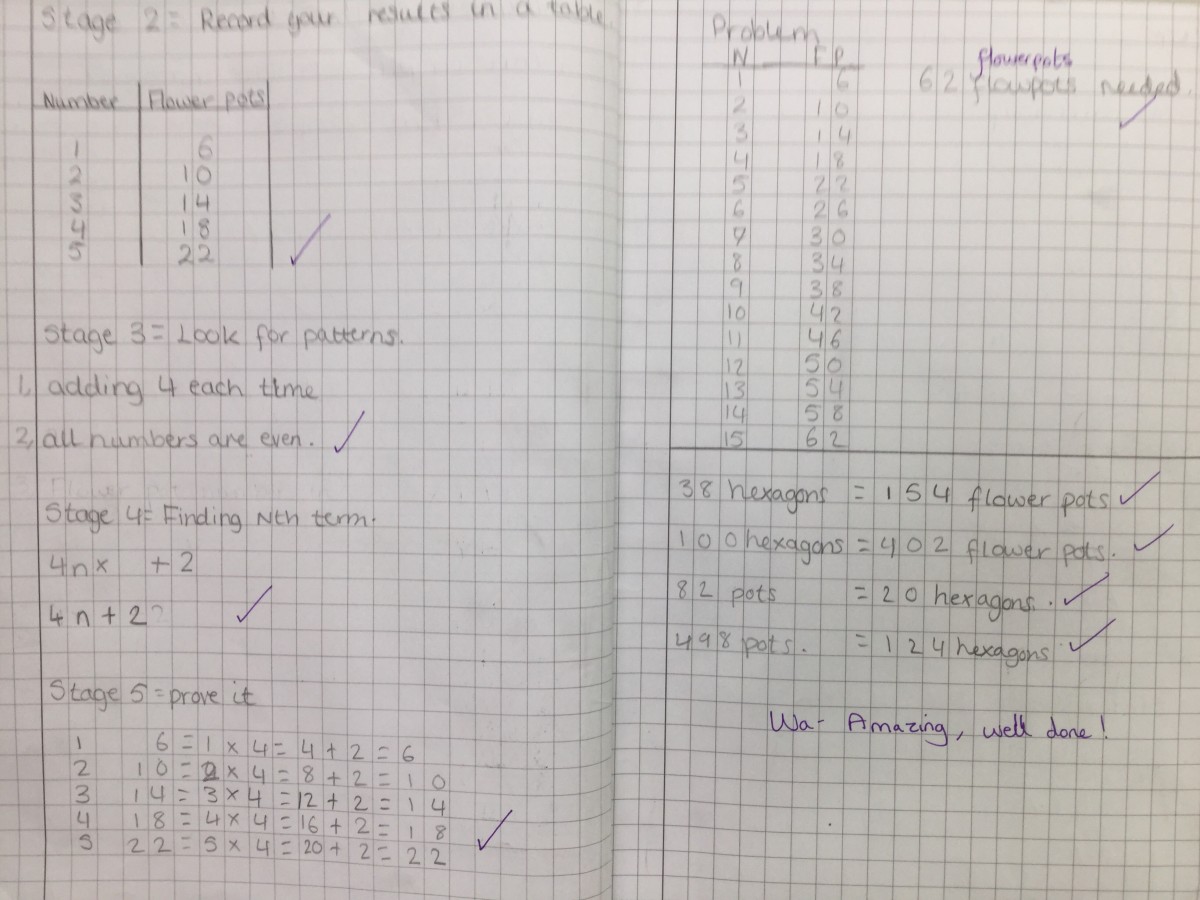 Stage 2 = Record your results in a table.
Number Flower pots
1 6
2 10
3 14
4 18
5 22
Stage 3 = Look for patterns.
1, adding 4 each time
2, all numbers are even.
Stage 4 = Finding Nth term.
4n x + 2
4n + 2
Stage 5 = prove it
1 6 = 1 x 4 = 4 + 2 = 6
2 10 = 2 x 4 = 8 + 2 = 10
3 14 = 3 x 4 = 12 + 2 = 14
4 18 = 4 x 4 = 16 + 2 = 18
5 22 = 5 x 4 = 20 + 2 = 22
Problem
N F P
1 6
2 10
3 14
4 18
5 22
6 26
7 30
8 34
9 38
10 42
11 46
12 50
13 54
14 58
15 62
flowerpots
62 flowpots needed.
38 hexagons = 154 flower pots
100 hexagons = 402 flower pots.
82 pots = 20 hexagons.
498 pots. = 124 hexagons
Wa- Amazing, well done!